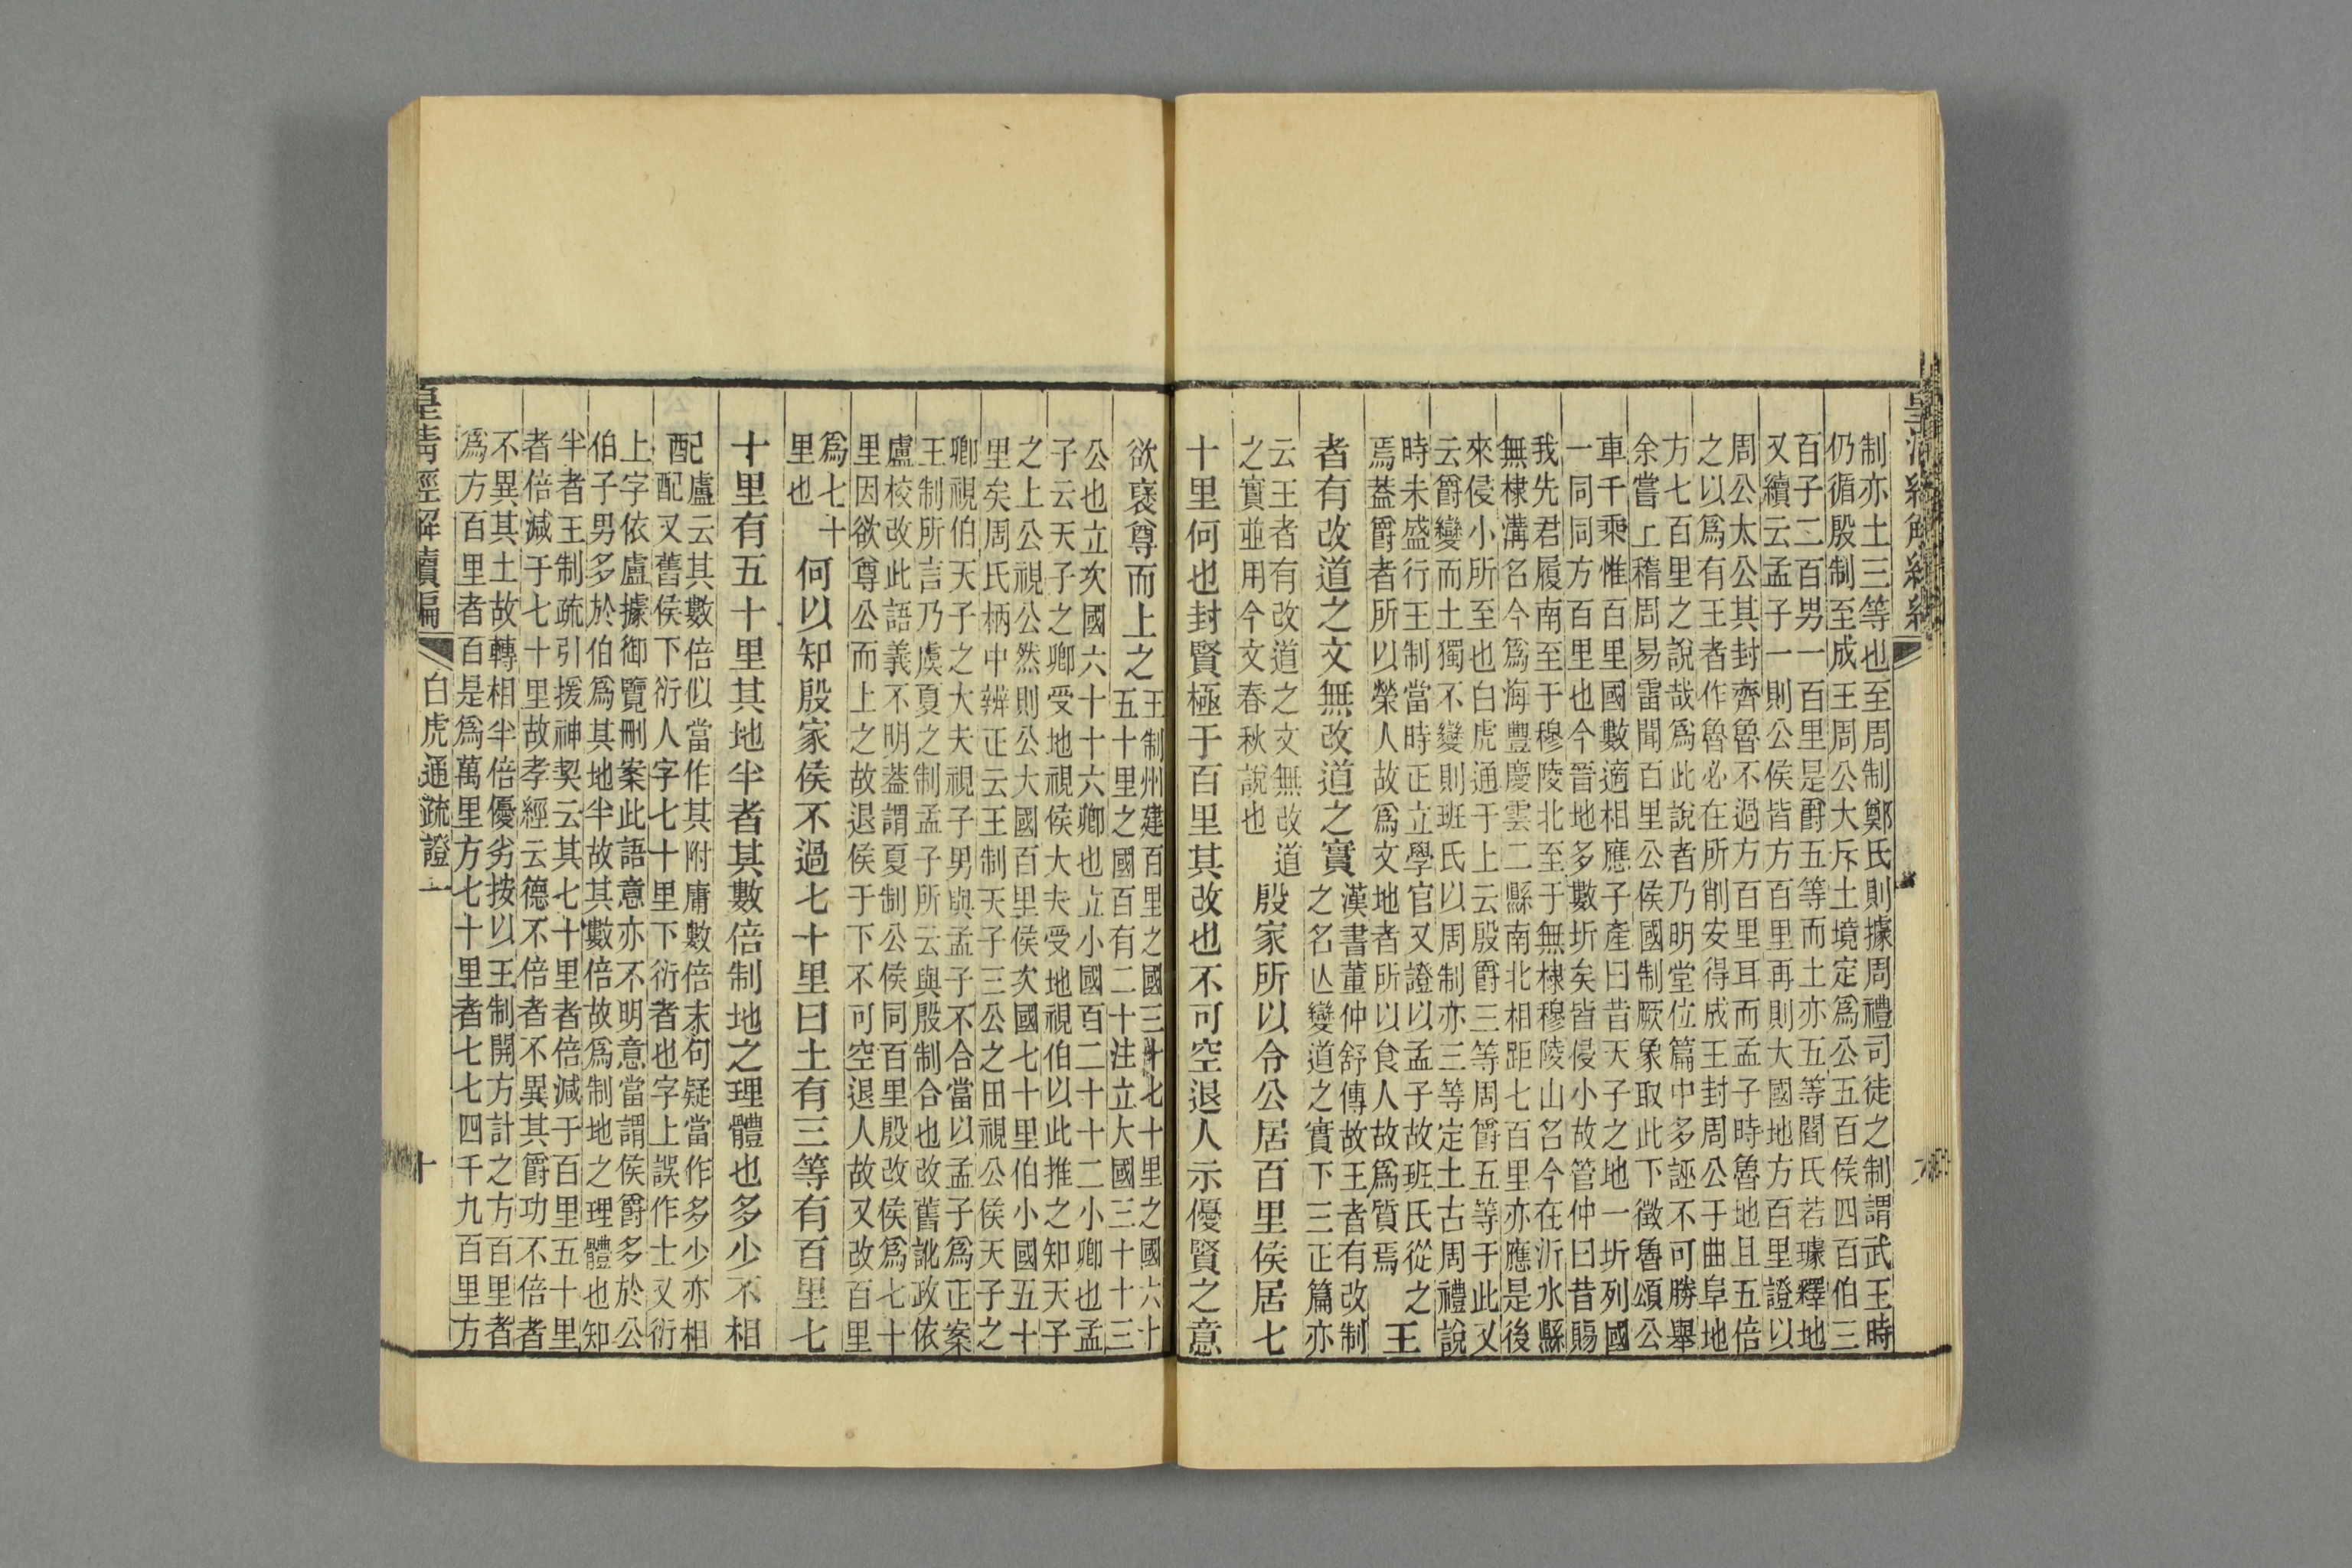 制亦土三等也至周制鄭氏則據周禮司徒之制謂武王時
仍循殷制至成王周公大斥土境定爲公五百侯四百伯三
百子二百男一百里是爵五等而土亦五等閻氏若璩釋地
又續云孟子一則公侯皆方百里再則大國地方百里證以
周公太公其封齊魯不過方百里耳而孟子時魯地且五倍
之以爲有王者作魯必在所削安得成王封周公于曲阜地
方七百里之說哉爲此說者乃明堂位篇中多誣不可勝舉
余嘗上稽周易雷聞百里公侯國制厥象取此下徵魯頌公
車千乘惟百里國數適相應子產曰昔天子之地一圻列國
一同同方百里也今晉地多數圻矣皆侵小故管仲曰昔賜
我先君履南至于穆陵北至于無棣穆陵山名今在沂水縣
無棣溝名今爲海豐慶雲二縣南北相距七百里亦應是後
來侵小所至也白虎通于上云殷爵三等周爵五等于此又
云爵變而土獨不變則班氏以周制亦三等定土古周禮說
時未盛行王制當時正立學官又證以孟子故班氏從之
焉葢爵者所以榮人故爲文地者所以食人故爲質焉
王
者有改道之文無改道之實
漢書董仲舒傳故王者有改制
之名亾變道之實下三正篇亦
云王者有改道之文無改道
之實並用今文春秋說也
殷家所以令公居百里侯居七
十里何也封賢極于百里其改也不可空退人示優賢之意
欲襃尊而上之
王制州建百里之國三十七十里之國六十
五十里之國百有二十注立大國三十十三
公也立次國六十十六卿也立小國百二十十二小卿也孟
子云天子之卿受地視侯大夫受地視伯以此推之知天子
之上公視公然則公大國百里侯次國七十里伯小國五十
里矣周氏柄中辨正云王制天子三公之田視公侯天子之
卿視伯天子之大夫視子男與孟子不合當以孟子爲正案
王制所言乃虞夏之制孟子所云與殷制合也改舊訛政依
盧校改此語義不明葢謂夏制公侯同百里殷改侯爲七十
里因欲尊公而上之故退侯于下不可空退人故又改百里
爲七十
里也
何以知殷家侯不過七十里曰土有三等有百里七
十里有五十里其地半者其數倍制地之理體也多少不相
配
盧云其數倍似當作其附庸數倍末句疑當作多少亦相
配又舊侯下衍人字七十里下衍者也字上誤作士又衍
上字依盧據御覽刪案此語意亦不明意當謂侯爵多於公
伯子男多於伯爲其地半故其數倍故爲制地之理體也知
半者王制疏引援神契云其七十里者倍減于百里五十里
者倍減于七十里故孝經云德不倍者不異其爵功不倍者
不異其土故轉相半倍優劣按以王制開方計之方百里者
爲方百里者百是爲萬里方七十里者七七四千九百里方
皇清經解續編
白虎通疏證一
十